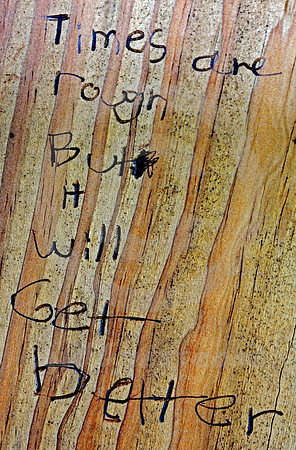 Times are
rough
But
it
will
Get
better